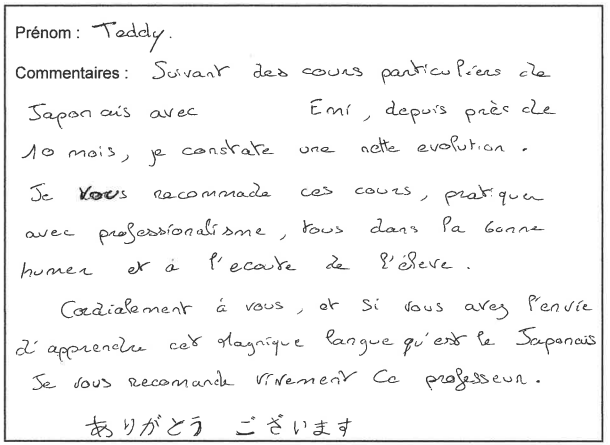 Prénom : Teddy.
Commentaires : Suivant des cours particuliers de
Japonais avec Emi, depuis près de
10 mois, je constate une nette evolution.
Je vous recommade ces cours, pratiquer
avec professionalisme, tous dans la bonne
humer et à l'ecoute de l'éleve.
Cordialement à vous, et si vous avez l'envie
d'apprendre cet Magnique langue qu'est le Japonais
Je vous recomande vivement Ce professeur.
ありがとう ございます